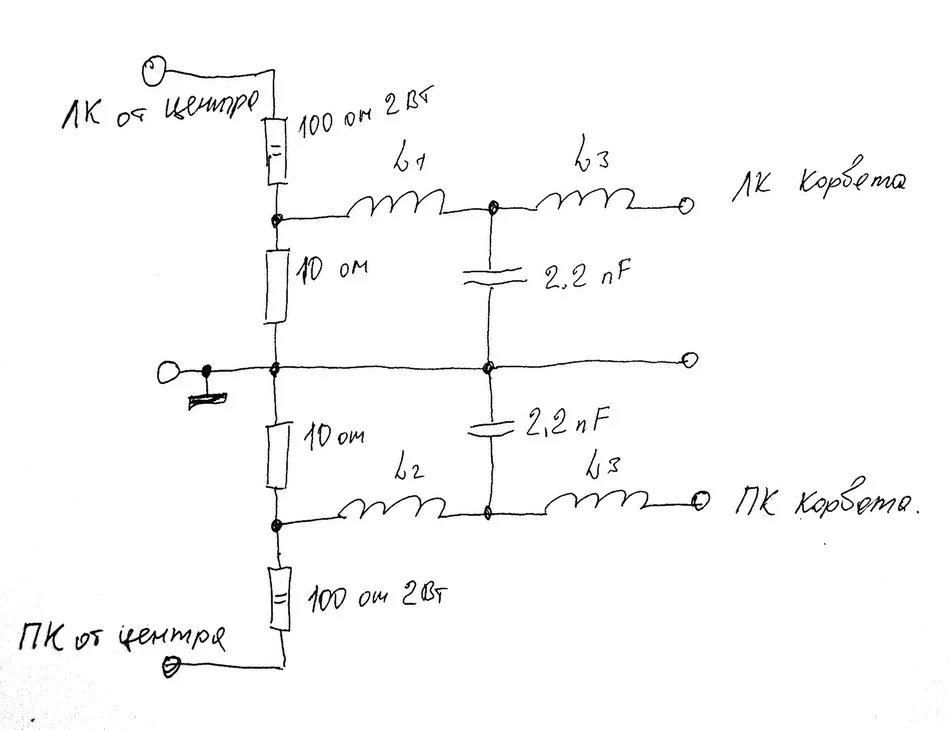 ЛК от центра
100 ом 2Вт
L1
L3
ЛК корвета
10 ом
2.2 nF
10 ом
2,2 nF
L2
L3
ПК корвета.
100 ом 2Вт
ПК от центра